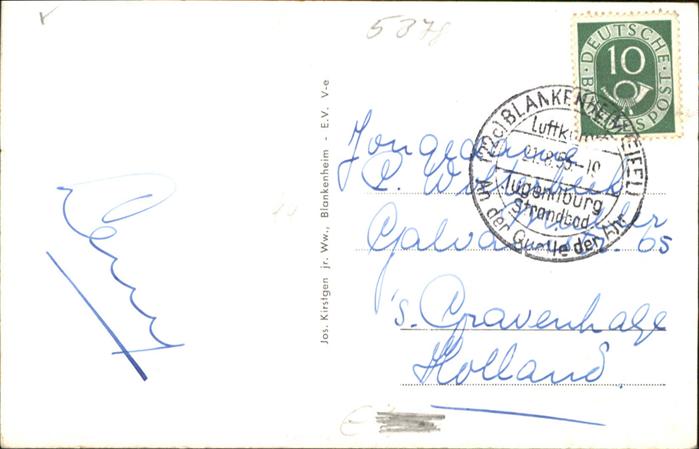 5378
DEUTSCHE
BUNDESPOST
10
(22c) BLANKENHEIM (EIFEL)
Luftkurort
Jugendburg
Strandbad
An der Quelle der Ahr
Jos. Kirstgen jr. Ww., Blankenheim - E.V. V-e
Jongedame
65
's Gravenhage
Holland.